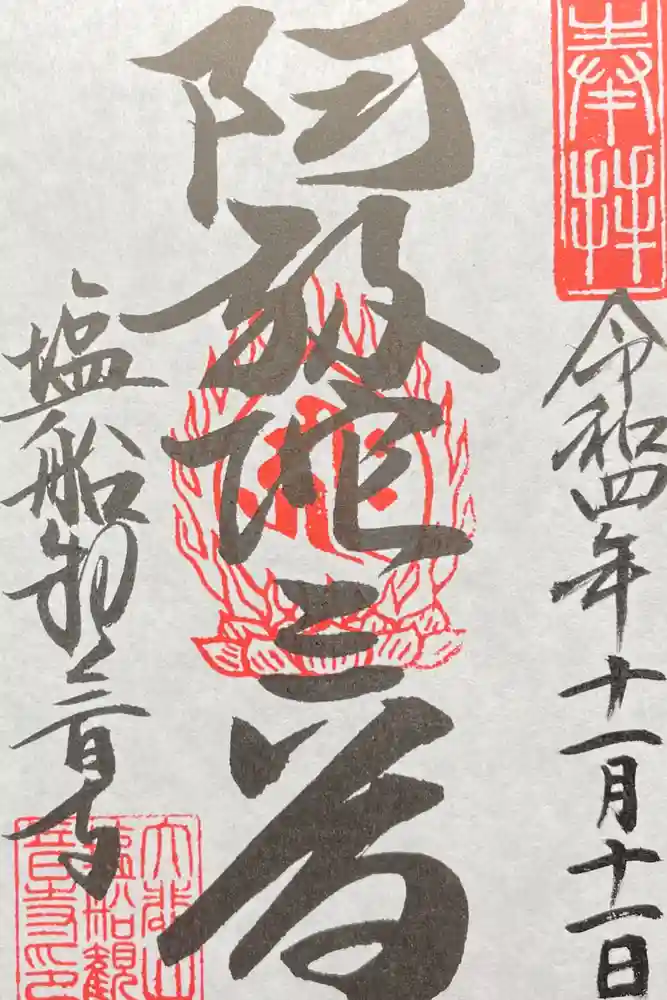 奉拝
令和四年十一月十一日
阿弥陀三尊
塩船観音寺
大悲山
塩船観
音寺